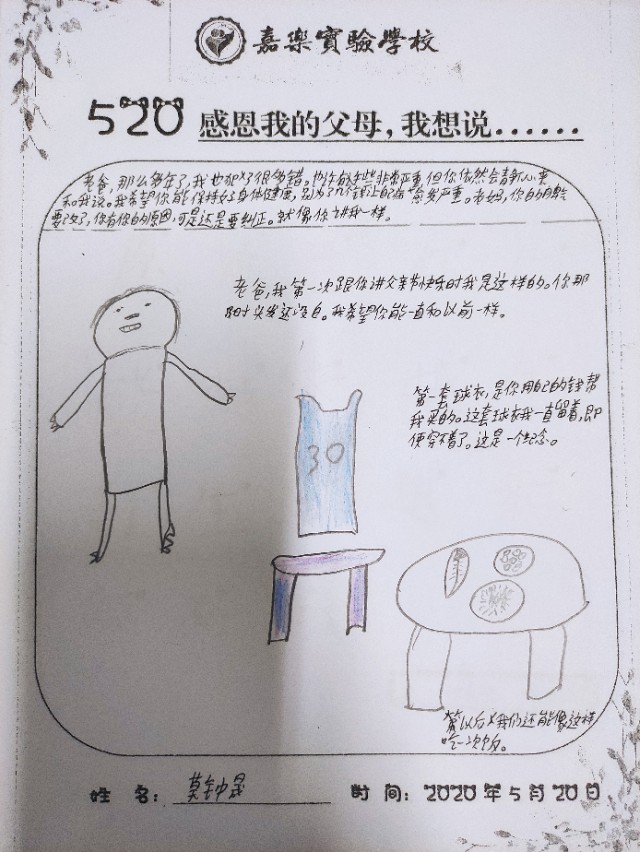 嘉樂實驗學校
520 感恩我的父母，我想说......
老爸，那么多年了，我也犯了很多错。也许有些非常严重，但你依然会青耐心来
和我说。我希望你能保持好身体健康，别为了几个钱让自己病愈发严重。老妈，你的
要改了，你有你的原因，可是还是要纠正。就像你讲我一样。
老爸，我第一次跟你讲父亲节快乐时我是这样的。你那
时头发还没白。我希望你能一直和以前一样。
第一套球衣，是你用自己的钱帮
我买的。这套球衣我一直留着，即
便穿不着了。这是一个纪念。
30
以后我们还能像这样
吃一次饭。
姓 名： 莫钟晟 时 间：2020年5月20日